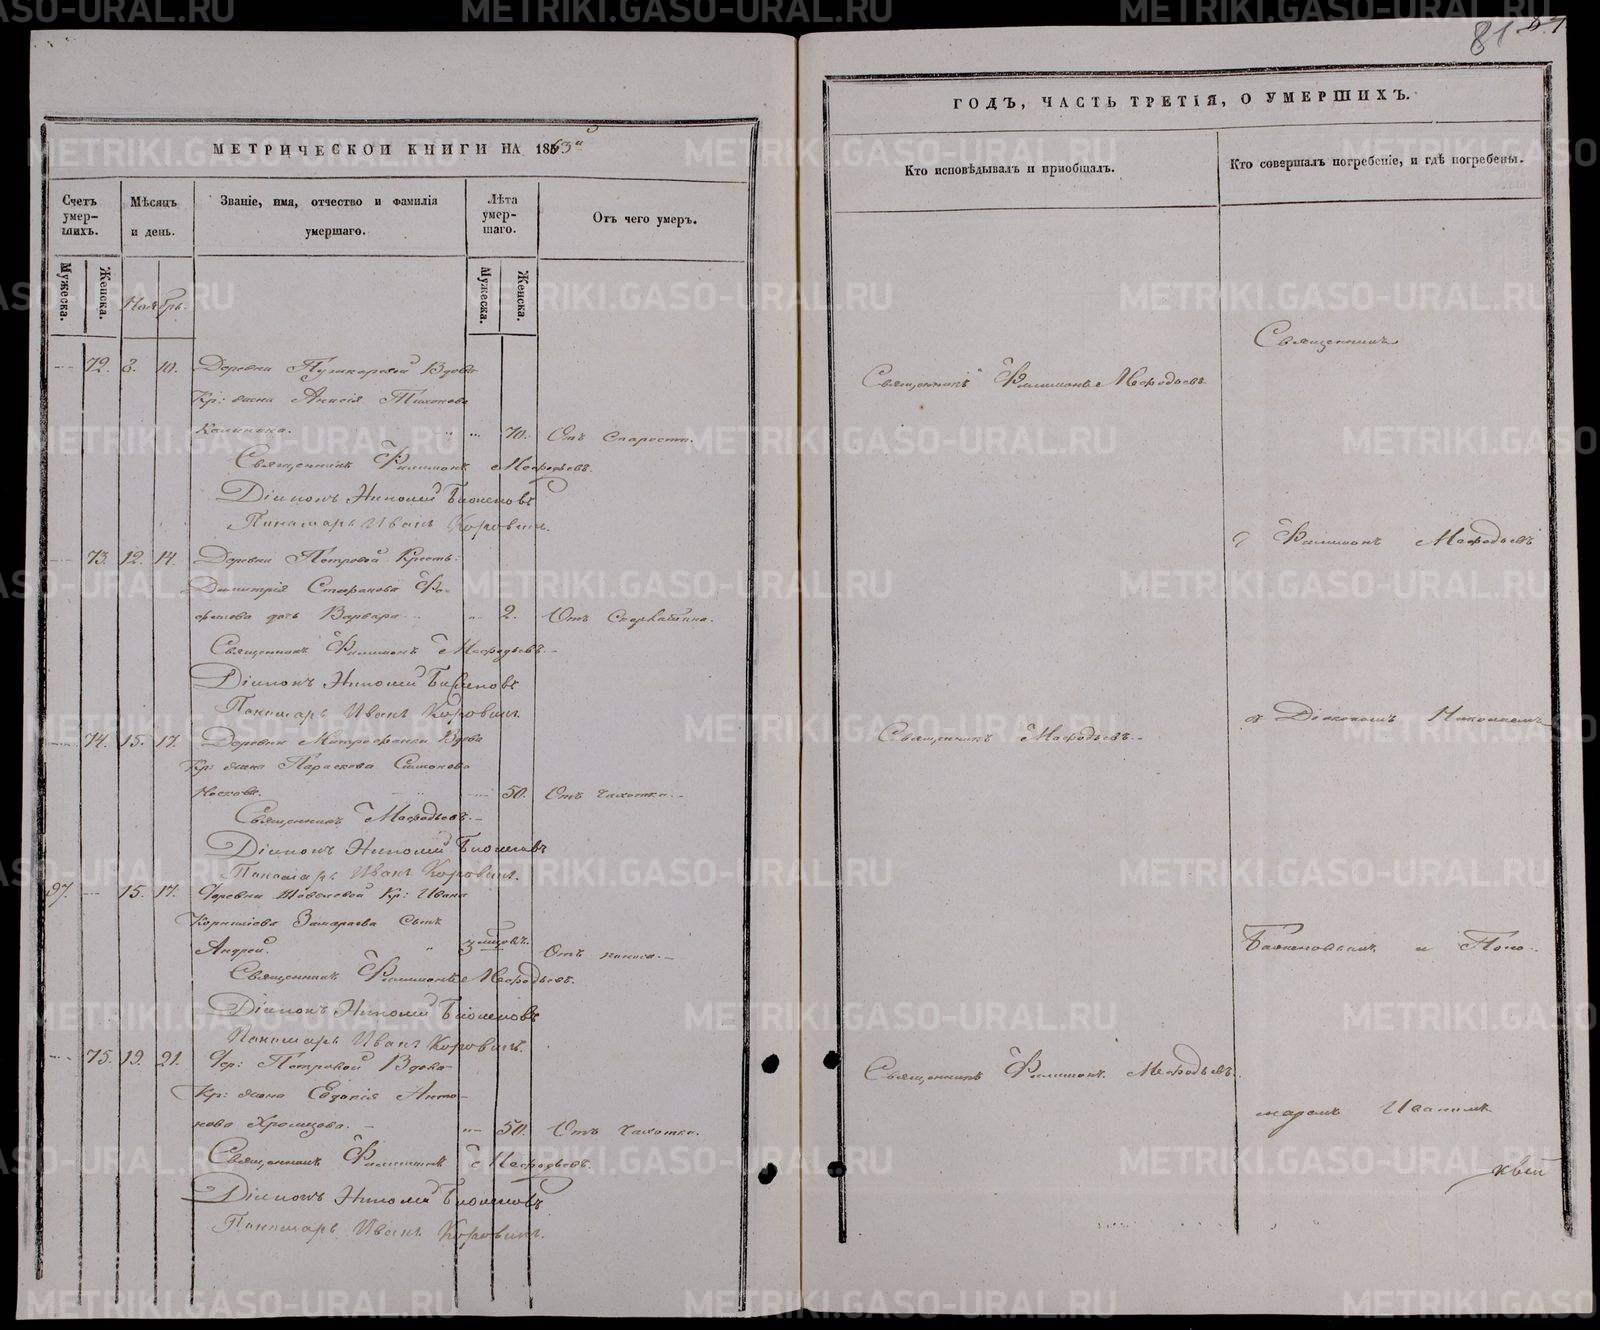 81
МЕТРИЧЕСКОЙ КНИГИ НА 1863й
Счетъ умер-шихъ.
Мѣсяцъ и день.
Званіе, имя, отчество и фамилія умершаго.
Лѣта умер-шаго.
Отъ чего умеръ.
Мужеска.
Женска.
Ноябрь.
Мужеска.
Женска.
72. 8. 10. Деревни Вдова
Кр: жена Анисія Тихонова
Калинина. 70. Отъ Старости.
Священникъ Филимонъ Мефодьевъ.
Діаконъ Николай Баженовъ
Пономарь Иванъ Коровинъ.
73. 12. 14. Деревни Петровой Кресть:
Димитрія Стефанова
дочь Варвара 2. Отъ
Священникъ Филимонъ Мефодьевъ.
Діаконъ Николай Баженовъ
Пономарь Иванъ Коровинъ.
74. 15. 17. Деревни Вдова
Кр: жена Параскова Симонова
Носкова. 50. Отъ Чахотки.
Священникъ Мефодьевъ.
Діаконъ Николай Баженовъ
Пономарь Иванъ Коровинъ.
97. 15. 17. Деревни Кр: Ивана
Корнилова Замараева Сынъ
Андрей. Отъ поноса.
Священникъ Филимонъ Мефодьевъ.
Діаконъ Николай Баженовъ
Пономарь Иванъ Коровинъ.
75. 19. 21. Дер: Петровой Вдова
Кр: жена Евдокія Анто-
нова 50. Отъ Чахотки.
Священникъ Филимонъ Мефодьевъ.
Діаконъ Николай Баженовъ
Пономарь Иванъ Коровинъ.
ГОДЪ, ЧАСТЬ ТРЕТІЯ, О УМЕРШИХЪ.
Кто исповѣдывалъ и пріобщалъ.
Кто совершалъ погребеніе, и гдѣ погребены.
Священникъ
Священникъ Филимонъ Мефодьевъ.
Филимонъ Мефодьевъ
съ Діакономъ Николаемъ
Священникъ Мефодьевъ.
Баженовымъ и Поно-
Священникъ Филимонъ Мефодьевъ.
маремъ Иваномъ
METRIKI.GASO-URAL.RU